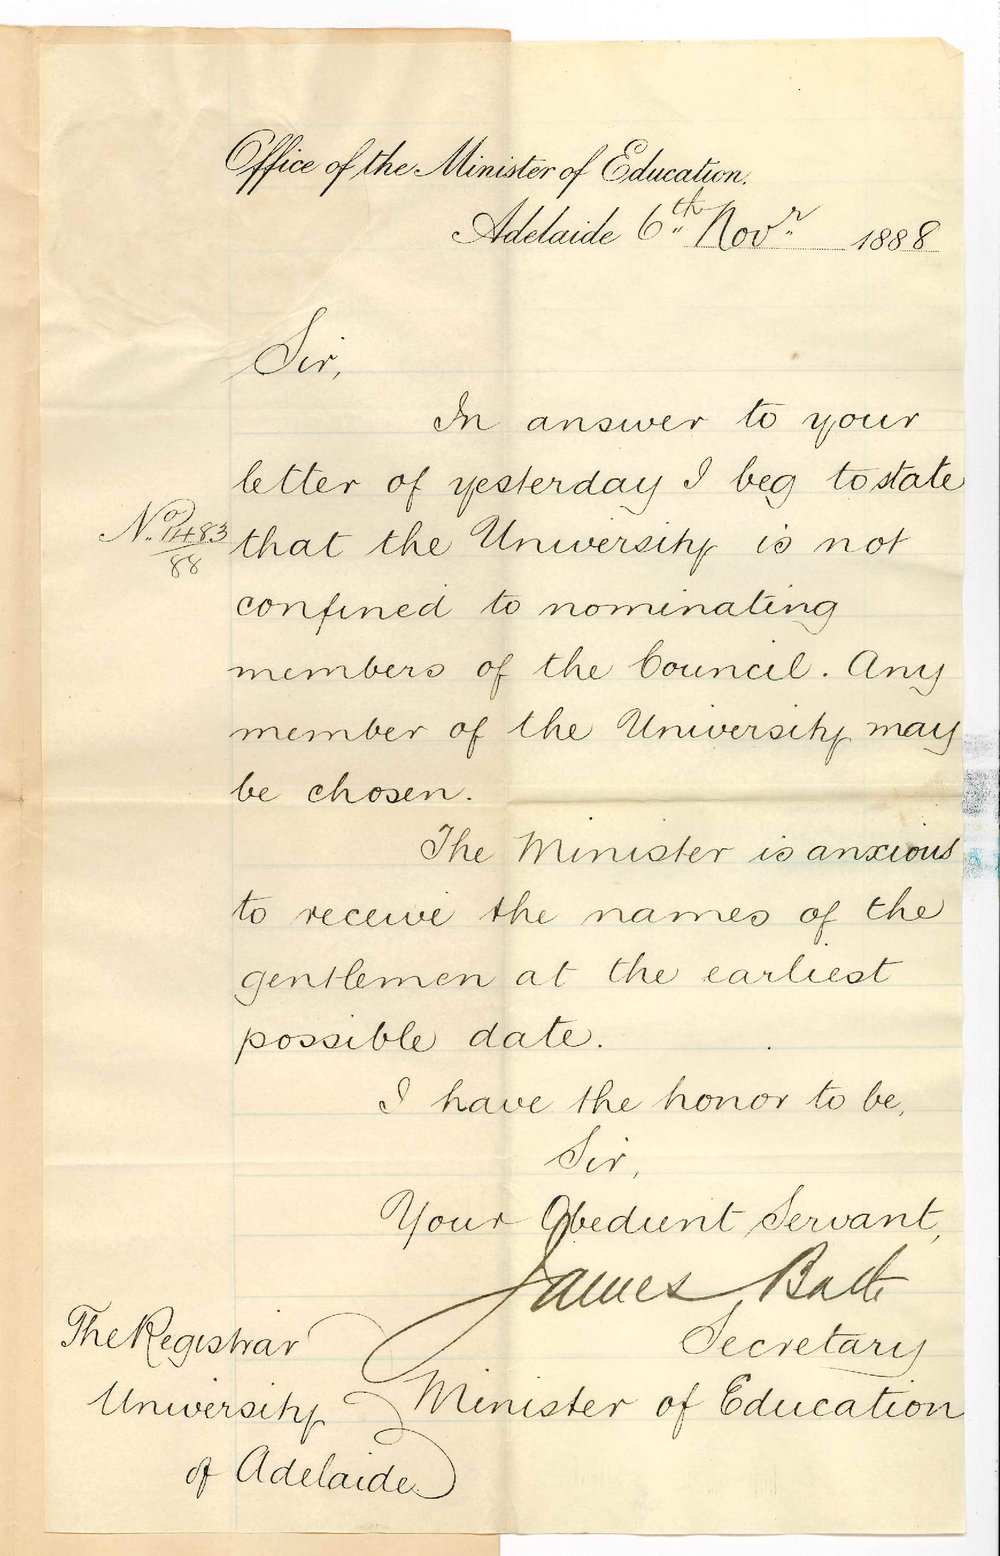 Office of the Minister of Education.
Adelaide 6th Novr 1888
Sir,
In answer to your
letter of yesterday I beg to state
No. 1483/88
that the University is not
confined to nominating
members of the Council. Any
member of the University may
be chosen.
The Minister is anxious
to receive the names of the
gentlemen at the earliest
possible date.
I have the honor to be,
Sir,
Your Obedient Servant,
James Bath
Secretary
Minister of Education
The Registrar
University
of Adelaide